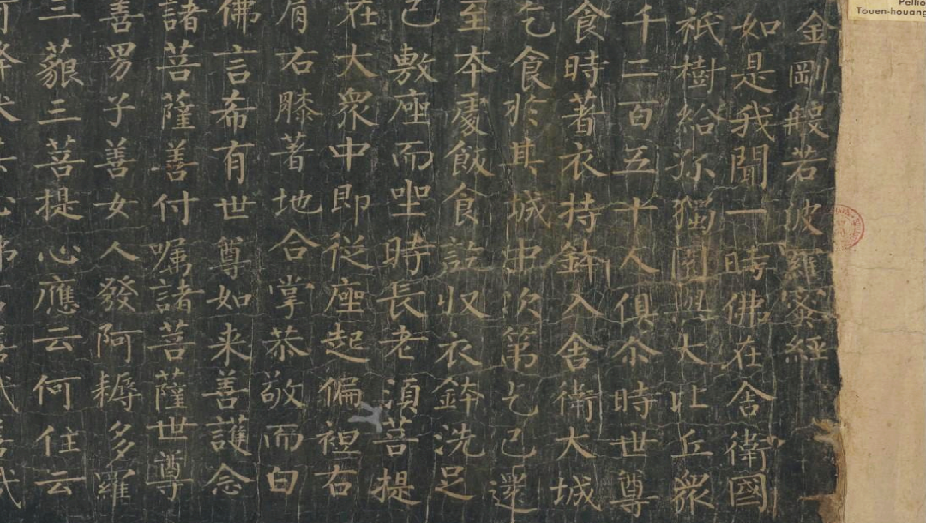 金剛般若波羅蜜經
如是我聞一時佛在舍衛國
祇樹給孤獨園與大比丘衆
千二百五十人俱尒時世尊
食時著衣持鉢入舍衛大城
乞食於其城中次第乞已還
至本處飯食訖収衣鉢洗足
已敷座而坐時長老須菩提
在大衆中即從座起偏袒右
肩右膝著地合掌恭敬而白
佛言希有世尊如来善護念
諸菩薩善付嘱諸菩薩世尊
善男子善女人發阿耨多羅
三藐三菩提心應云何住云
Touen-houang